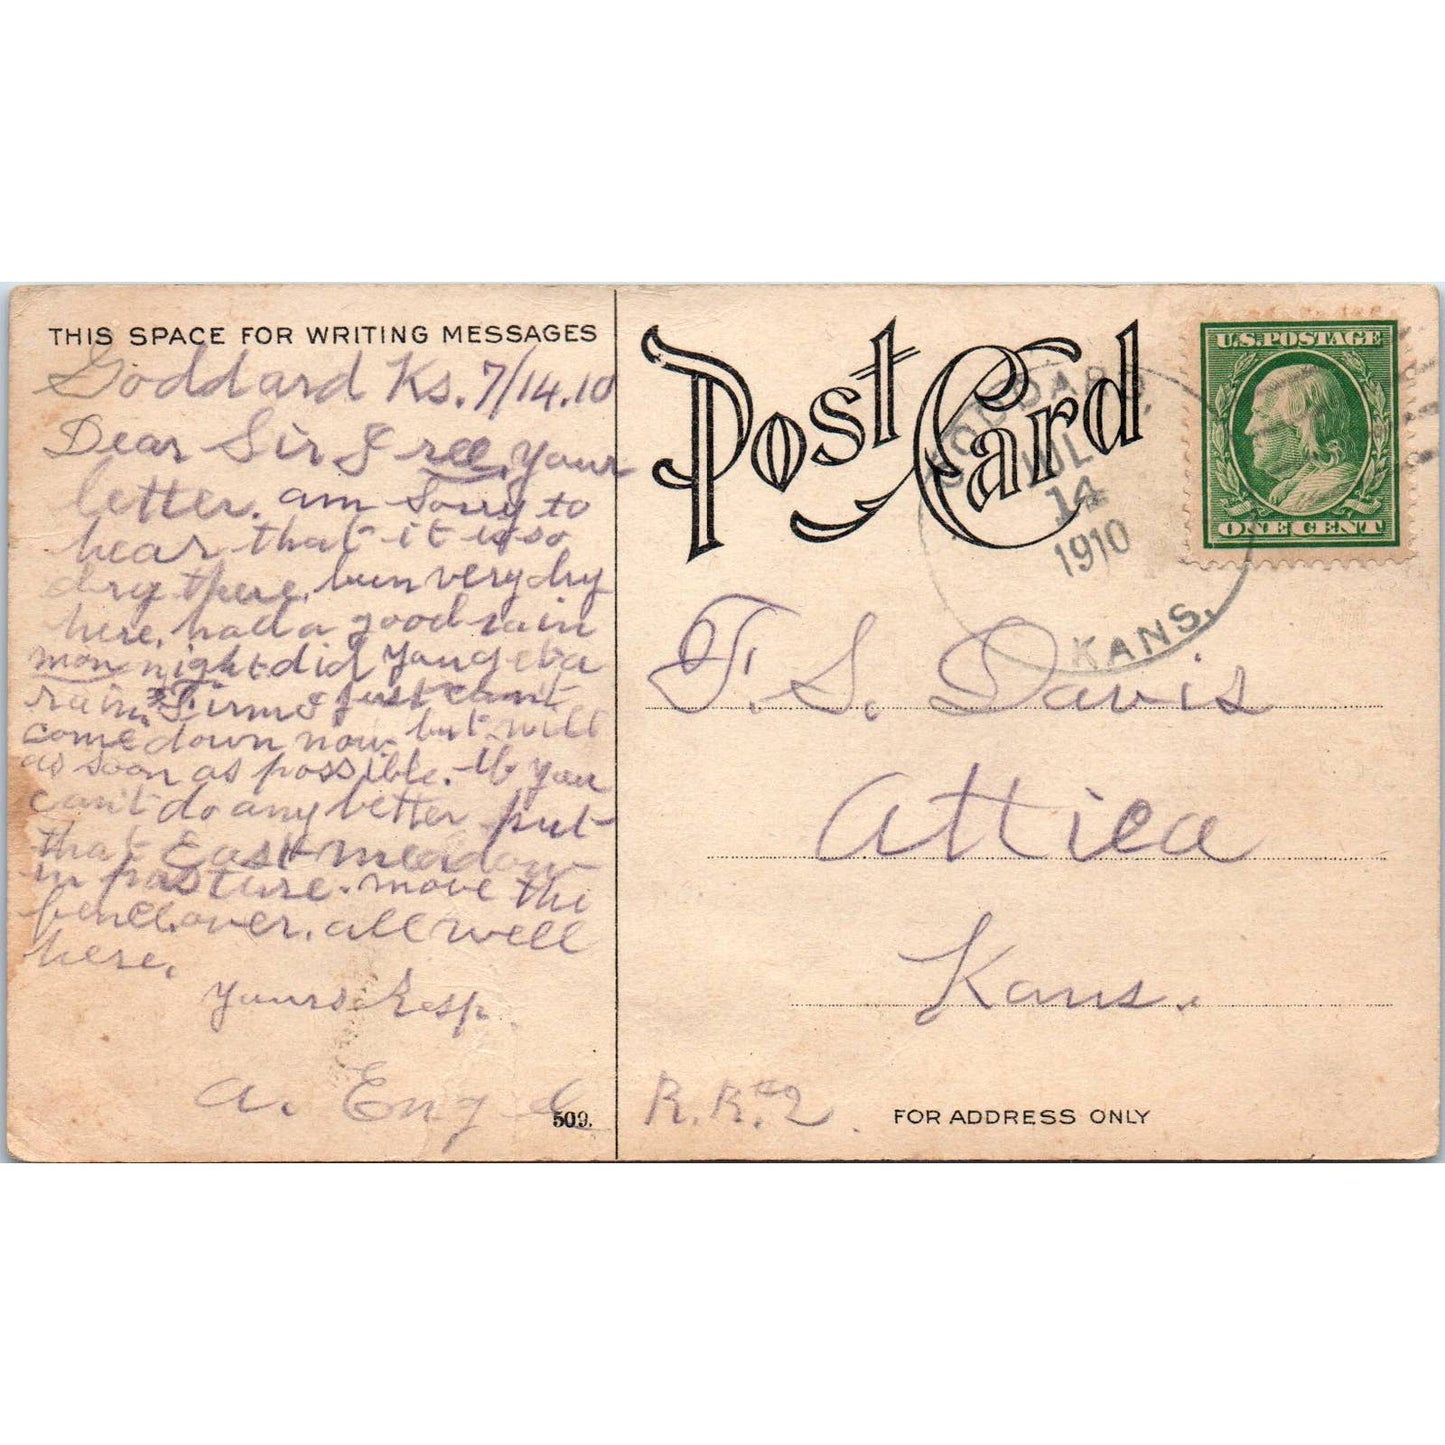 THIS SPACE FOR WRITING MESSAGES
Goddard Ks. 7/14.10
Dear Sir I rec. your
letter. am sorry to
hear that it is so
dry there. been very dry
here. had a good rain
mon night did you get a
rain. I just can't
come down now but will
as soon as possible. If you
can't do any better put
that East meadow
in pasture. move the
fence over. all well
here.
Yours Resp.
A. Engel
509.
Post Card
GODDARD,
JUL
14
1910
KANS.
U.S. POSTAGE
ONE CENT
T. S. Davis
Attica
Kans.
R. R. # 2
FOR ADDRESS ONLY